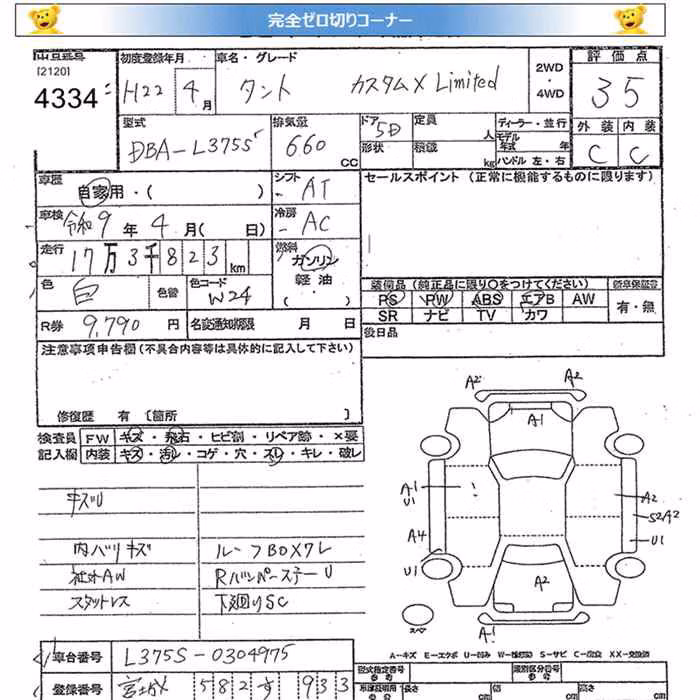 完全ゼロ切りコーナー
出品番号
[2120]
4334
初度登録年月
H22 4月
車名・グレード
タント カスタムX Limited
2WD
・4WD
評価点
35
型式
DBA-L375S
排気量
660 cc
ドア 5D
形状
定員 人
積載 kg
ディーラー・並行
モデル年式 年
ハンドル 左・右
外装 内装
C C
車歴
自家用・( )
シフト
- AT
セールスポイント (正常に機能するものに限ります)
車検
令和9年4月( 日)
冷房
- AC
走行
17万3千823km
燃料
ガソリン
軽油
・( )
色
白
色替
色コード
W24
装備品(純正品に限り○をつけてください)
PS PW ABS エアB AW
SR ナビ TV カワ
新車保証書
有・無
R券 9,790円
名変通知期限 月 日
後日品
注意事項申告欄(不具合内容等は具体的に記入して下さい)
修復歴 有 〔箇所 〕
検査員記入欄
FW キズ・飛石・ヒビ割・リペア跡・×要
内装 キズ・汚レ・コゲ・穴・スレ・キレ・破レ
キズU
内バリキズ
社外AW
スタットレス
ルーフBOXワレ
RバンパーステーU
下廻りSC
A2 A2
A1
A1
U1
A2
S2A2
A4
U1
U1
A2
スペア
A1
A-キズ E-エクボ U-凹み W-補修跡 S-サビ C-腐食 XX-交換済
車台番号 L375S-0304975
型式指定番号
類別区分番号
登録番号 582 す 933
長さ cm
幅 cm
高さ cm